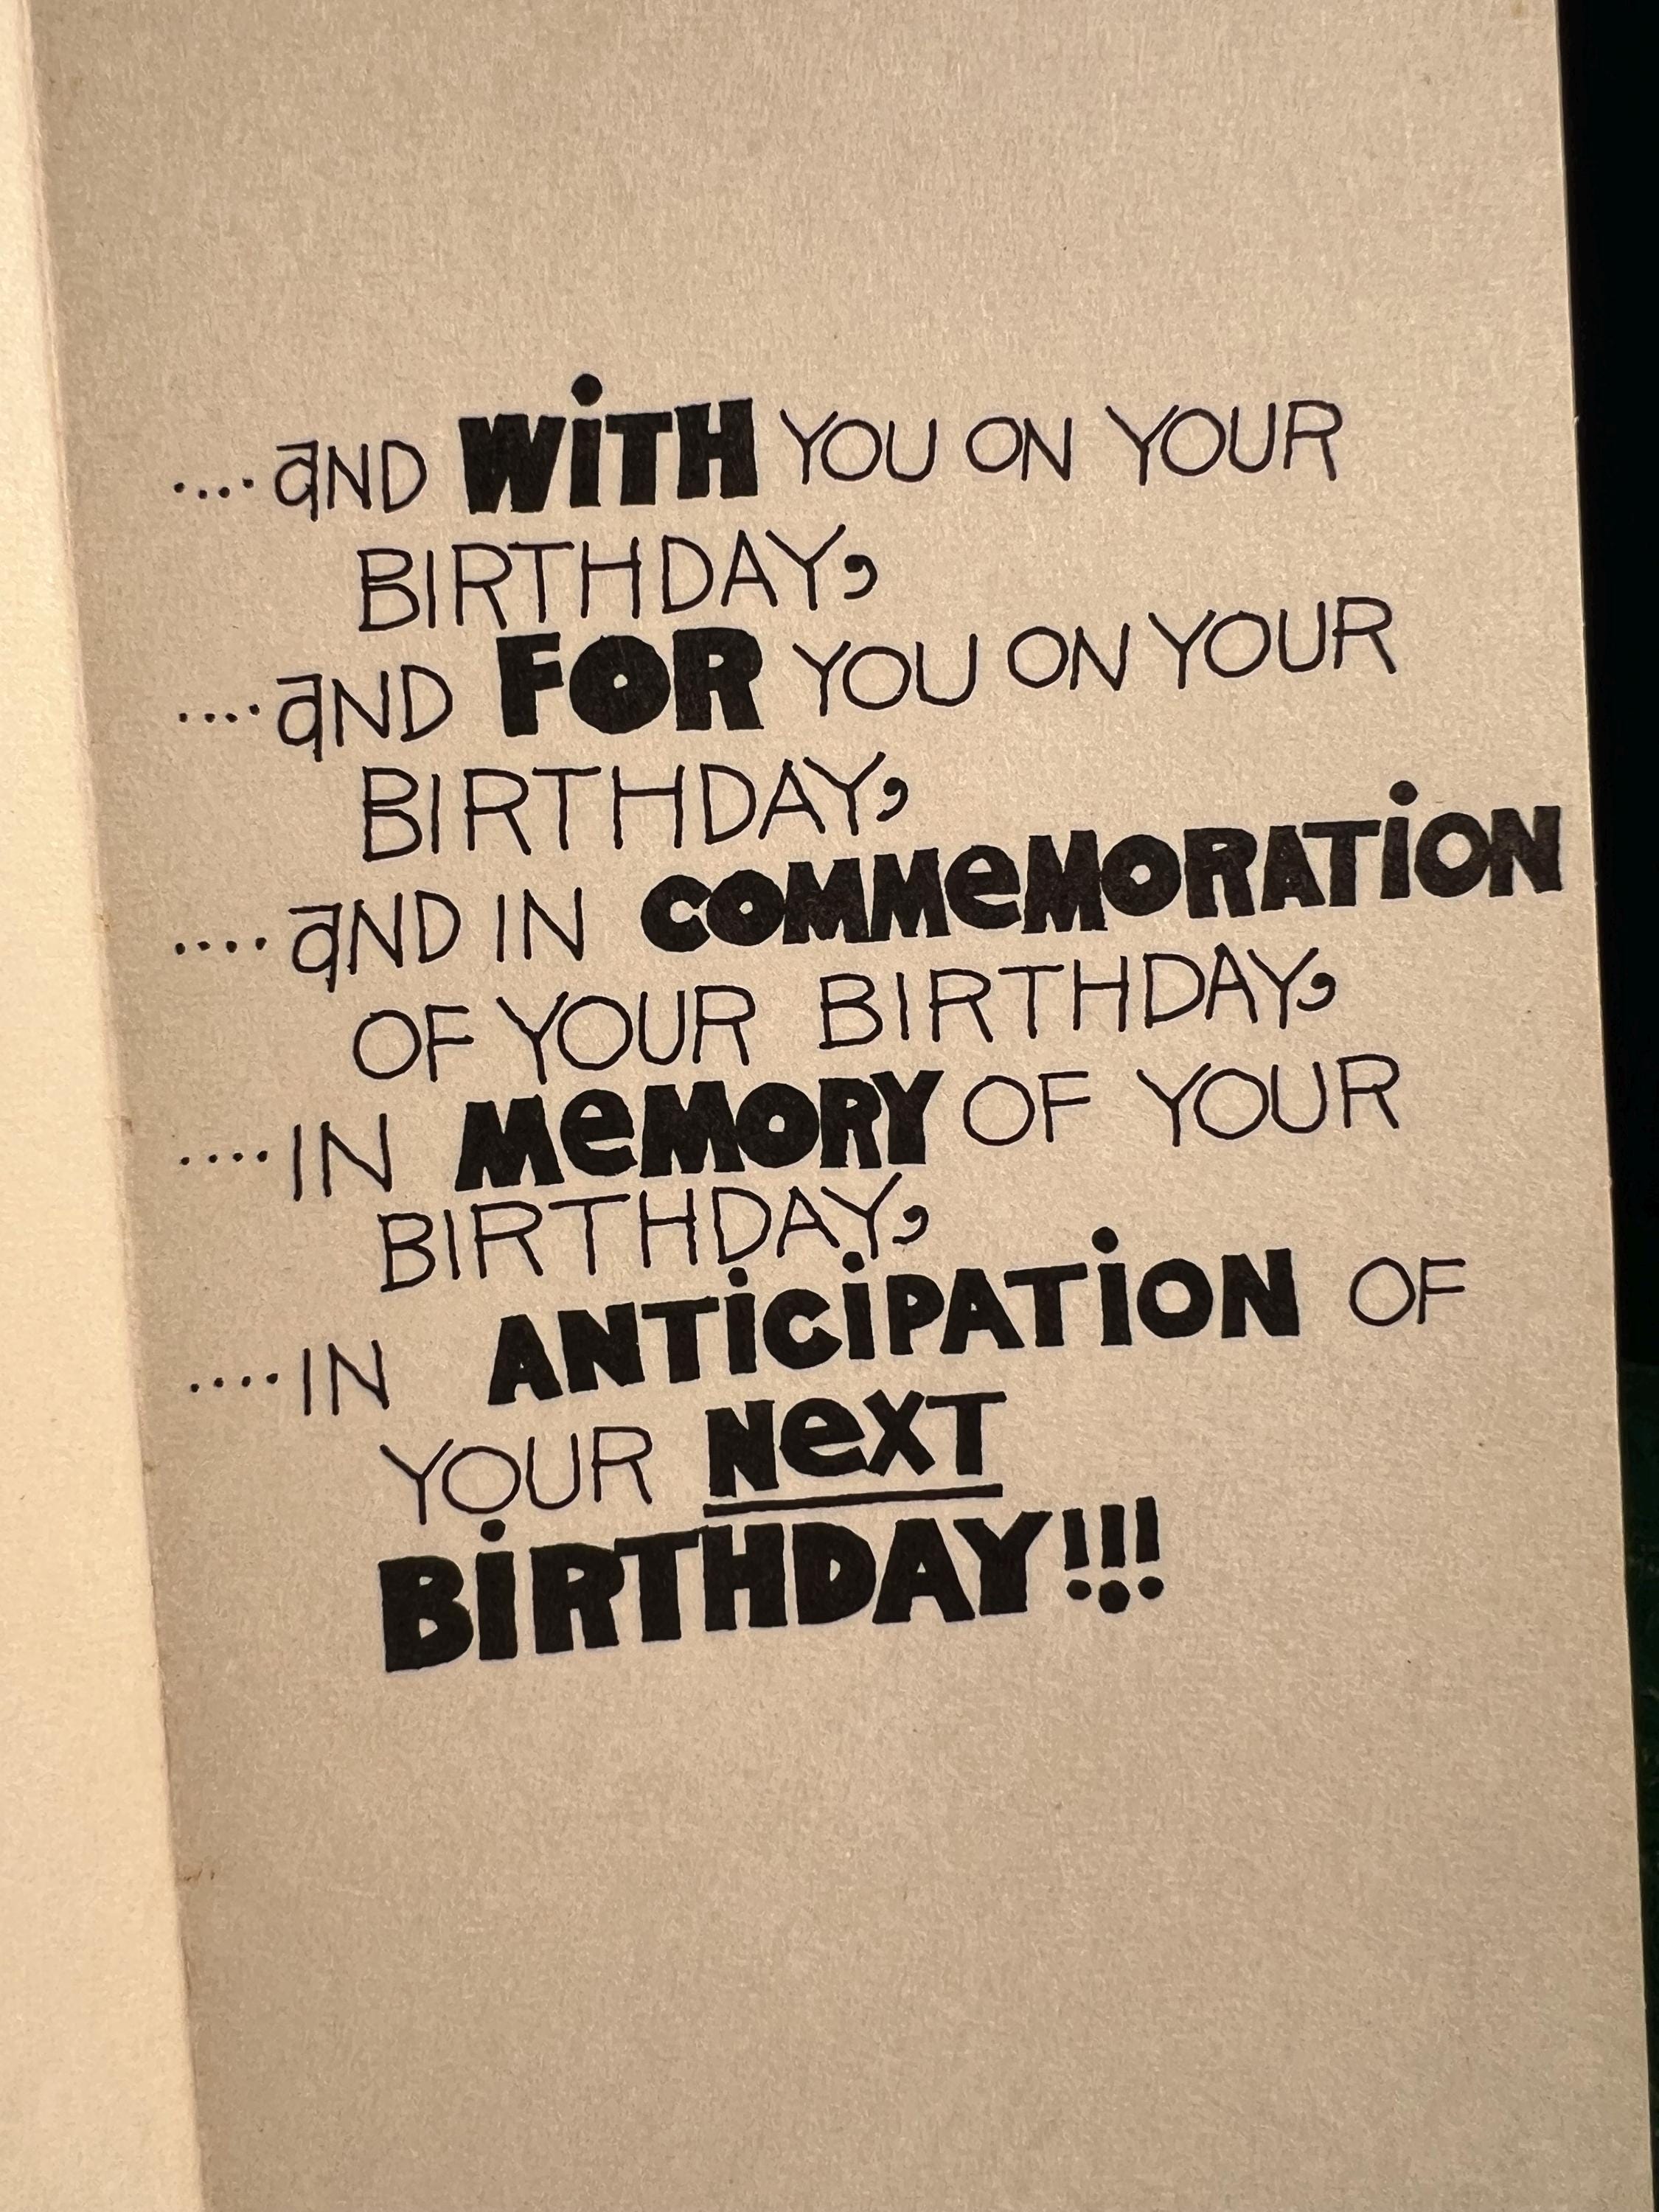 ....aND WiTH YOU ON YOUR
BIRTHDAY,
....aND FOR YOU ON YOUR
BIRTHDAY,
....aND IN COMMeMORATiON
OF YOUR BIRTHDAY,
....IN MeMORY OF YOUR
BIRTHDAY,
....IN ANTiCiPATiON OF
YOUR NeXT
BiRTHDAY!!!